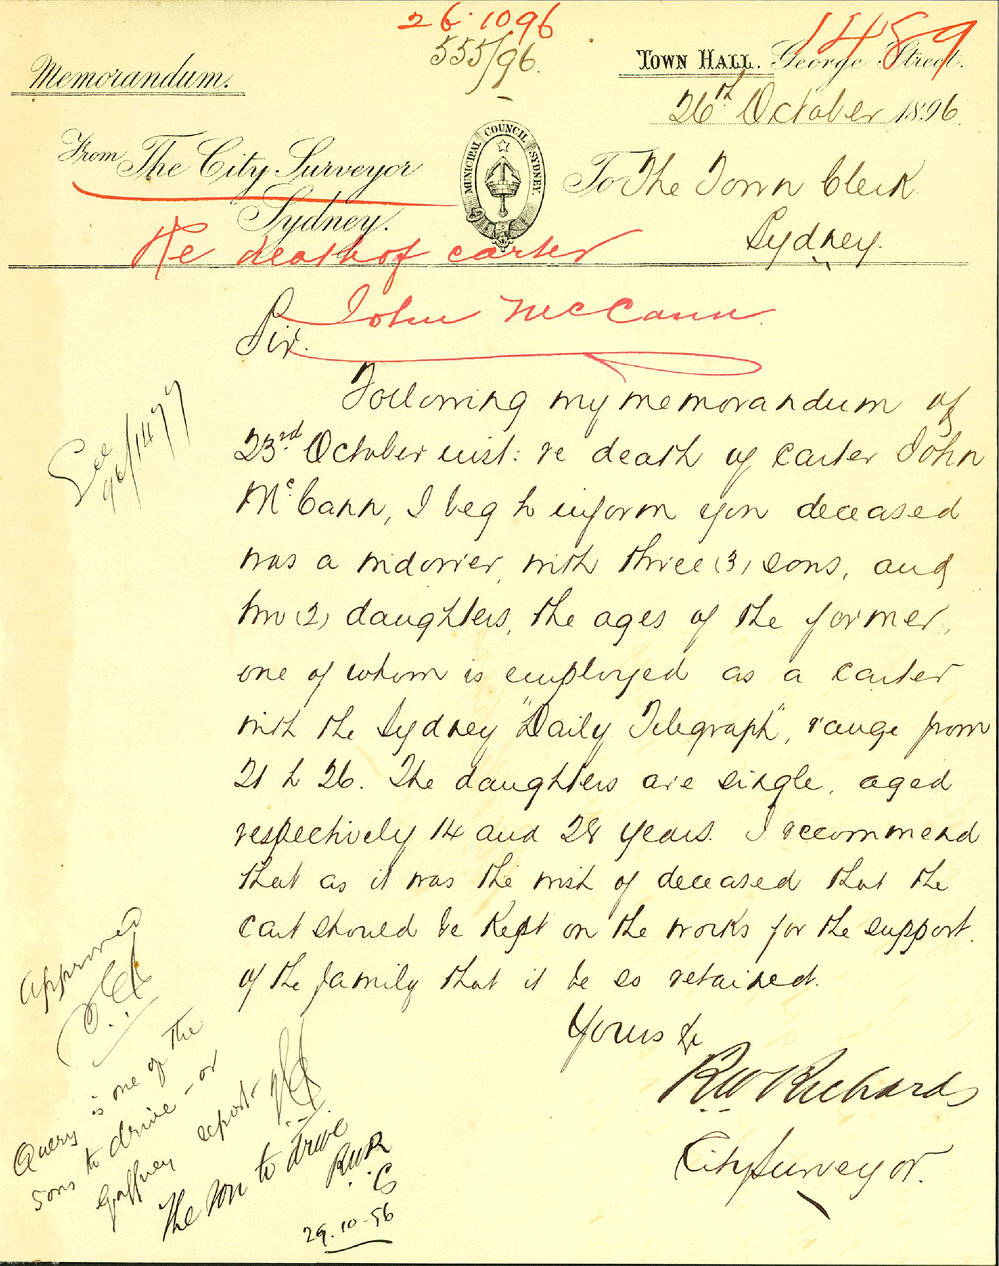 26.10 96
555/96.
1489
Memorandum.
TOWN HALL. George Street.
26th October 1896
From The City Surveyor
Sydney.
MUNICIPAL COUNCIL SYDNEY.
To The Town Clerk
Sydney.
Re death of carter
John McCann.
Sir.
Following my memorandum of
23rd October inst: re death of carter John
McCann, I beg to inform you deceased
was a widower, with three (3) sons, and
two (2) daughters, the ages of the former,
one of whom is employed as a carter
with the Sydney "Daily Telegraph", range from
21 to 26. The daughters are single, aged
respectively 14 and 28 years. I recommend
that as it was the wish of deceased that the
cart should be kept on the works for the support
of the family that it be so retained.
Yours &c
RW Richards
City Surveyor.
See
96/1477
Approved
Query is one of the
sons to drive - or
Gaffney report -
The son to drive
RWR
CS
29.10.96